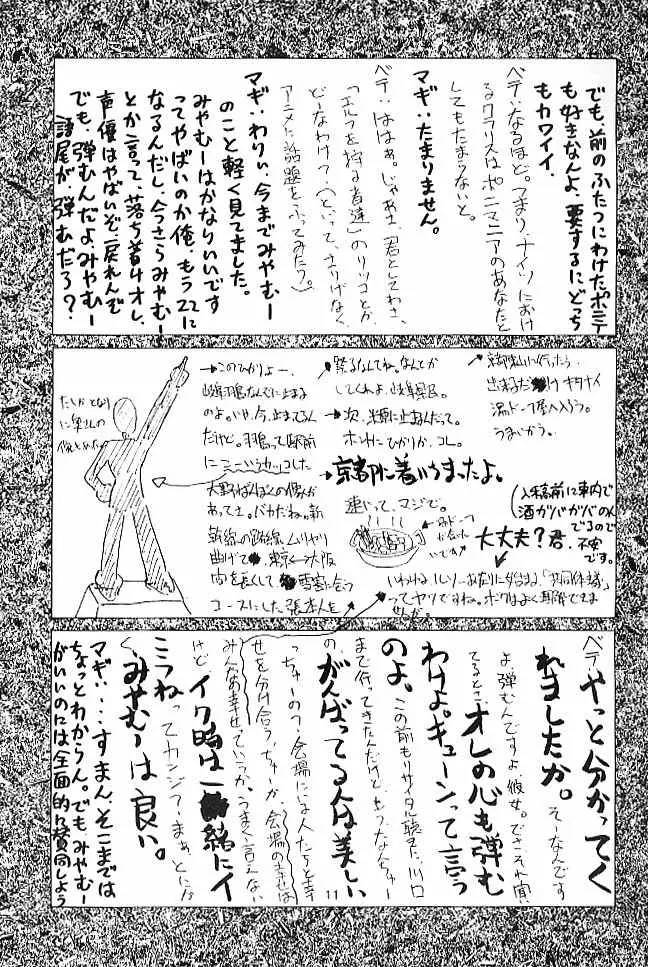 でも、前のふたつにわけたポニテ
も好きなんよ、要するにどっち
もカワイイ、
ベテ:なるほど。つまり、ナイツにおけ
るクラリスはポニマニアのあなたと
してもたまらないと。
マギ:たまりません。
ベテ:ははぁ。じゃあさ、君としてわさ、
「エルフを狩る者達」のリツコとか
どーなわけ?(といって、さりげなく
アニメに話題をふってみたりっ)
マギ:わりぃ、今までみやむー
のこと軽く見てました。
みやむーはかなりいいです
ってやばいのか俺、もう22に
なるんだし、今さらみやむー
とか言って、落ち着けオレ、
声優はやばいぞ、戻れんぞ
でも、弾むんだよみやむー
語尾が弾むだろ?
京都駅に行ったら、
出まるだ けキタナイ
湯ドーフ屋へ入ろう。
うまいかう。
(入稿前に車内で
酒ガバガバのん
でるので
不安
です。
大丈夫?君、
→このひかりよー、
岐阜羽島なんぞに止まる
のよ。いや、今、止まってるん
だけど。羽島って駅前
にニーハオカッコした
大野ばんぼくの像が
あってさ。バカだね。新
幹線の路線ムリヤリ
曲げて 東京〜大阪
間を長くして 雪害に会う
コースにした張本人を
祭るなんてね、なんとか
してくれよ、岐阜県民。
→次、米原に止まるんだって。
ホントにひかりか、コレ。
→京都に着いちまったよ。
速いって、マジで。
たしかとなり
に奥さんの
像とかた
いわゆるルソーあたりに始まる、「共同体域」
ってヤツですね。ボクはよく理解できま
せんが。
ベテ:やっと分かってく
れましたか。そーなんです
よ、弾むんですよ、彼女。でさそれ聞い
てるとさオレの心も弾む
わけよ。キューンって言う
のよ、この前もリサイタル聴きに川口
まで行ってきたんだけど、もうなんちゅー
の、がんばってる人は美しい
っちゅーの?会場にいる人たちと幸
せを分け合う、ちゅーか、会場の幸せは
みんなの幸せっていうか、うまく言えない
けど、イク時は一緒にイ
こうねってカンジ?まぁ、とにかく
く、みやむーは良い。
マギ:・・・すまん、そこまでは
ちょっとわからん。でも、みやむー
がいいのには全面的に賛同しよう